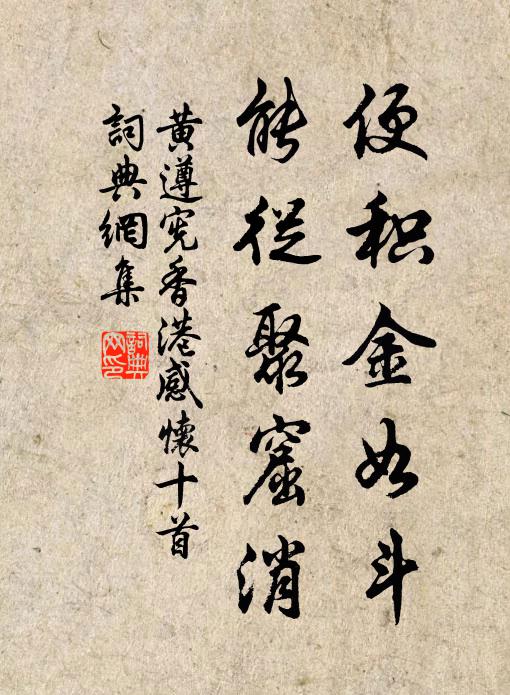 便积金如斗
能從聚窟消
黄遵宪香港感懷十首
詞典網集
詞典網印